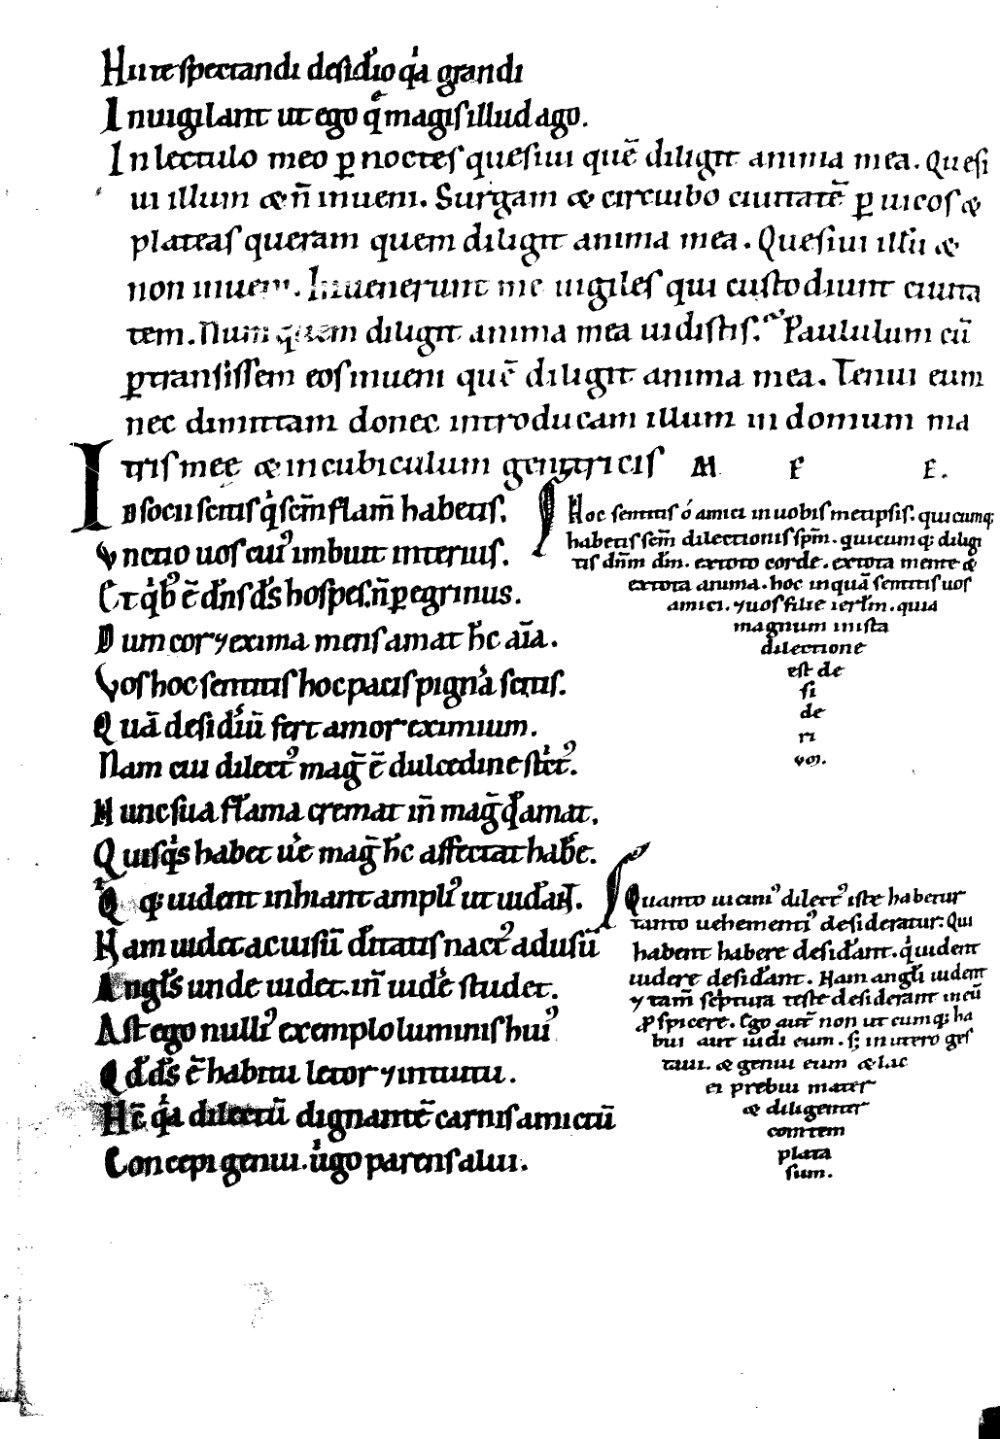 Huic spectandi desid̾io q̾a grandi
Inuigilant ut ego q̾ magis illud ago.
In lectulo meo ꝑ noctes quesiui quē diligit anima mea. Quesi
ui illum & n̄ inueni. Surgam & circuibo ciuitatē ꝑ uicos &
plateas queram quem diligit anima mea. Quesiui illū &
non inueni. Inuenerunt me uigiles qui custodiunt ciuita
tem. Num quem diligit anima mea uidistis. Paululum cū
ꝑtransissem eos inueni quē diligit anima mea. Tenui eum
nec dimittam donec introducam illum in domum ma
tris meę & in cubiculum genitricis M E E.
Id socii scitis q̾ sem̄ flam̄ habetis.
Unctio uos cui᾿ imbuit interius.
Et q̾b᾿ ē dn̄s ds̄ hospes. n̄ ꝑegrinus.
Dum cor ⁊ exima mens amat hc̄ aīa.
Vos hoc sentitis hoc pacis pign̾a scitis.
Quā desid̾iū fert amor eximium.
Nam cui dilect᾿ mag̃ ē dulcedine st̾ct᾿.
Hunc sua flāma cremat in̄ mag̃ qd̄ amat.
Quisq̾s habet ue̾ mag̃ hc̄ affectat habe̾.
Qq; uident inhiant ampli᾿ ut uid̾aꝝ.
Nam uidet ac uisū dītatis nact᾿ ad usū
Angls̄ unde uidet. in̄ uide̾ studet.
Ast ego nulli᾿ exemplo luminis hui᾿
Qd̄ ds̄ ē habitu letor ⁊ intuitu.
Hē q̾a dilectū dignantē carnis amictū
Concepi genui. u̾go parens alui.
Hoc sentitis ó amici in uobis metipsis. quicumq;
habetis sem̄ dilectionis spm̄. quicumq; diligi
tis dn̄m dm̄. ex toto corde. ex tota mente &
ex tota anima. hoc inquā sentitis uos
amici. ⁊ uos filie ierl̄m. quia
magnum in ista
dilectione
est de
si
de
ri
um.
Quanto uicini᾿ dilect᾿ iste habetur
tanto uehementi᾿ desideratur. Qui
habent habere desid̾ant. q̾ uident
uidere desid̾ant. Nam angl̄i uident
⁊ tam̄ sc̾ptura teste desiderant in eū
ꝓspicere. Ego aut̄ non utcumq; ha
bui aut uidi eum. s; in utero ges
taui. & genui eum & lac
ei prebui mater
& diligenter
contem
plata
sum.